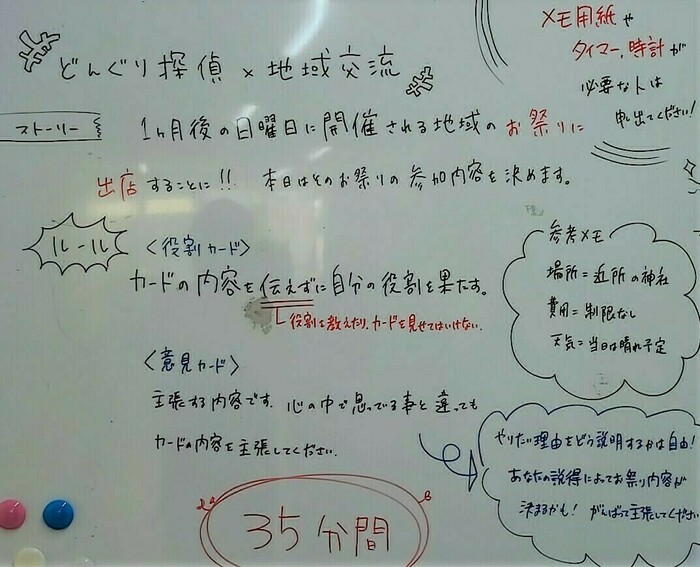 どんぐり探偵×地域交流
メモ用紙や
タイマー、時計が
必要な人は
申し出てください!
ストーリー
1ヶ月後の日曜日に開催される地域のお祭りに
出店することに!! 本日はそのお祭りの参加内容を決めます。
ルール
〈役割カード〉
カードの内容を伝えずに自分の役割を果たす。
役割を教えたり、カードを見せてはいけない。
〈意見カード〉
主張する内容です。心の中で思っている事と違っても
カードの内容を主張してください。
参考メモ
場所=近所の神社
費用=制限なし
天気=当日は晴れ予定
やりたい理由をどう説明するかは自由!
あなたの説得によってお祭り内容が
決まるかも! がんばって主張してください
35分間